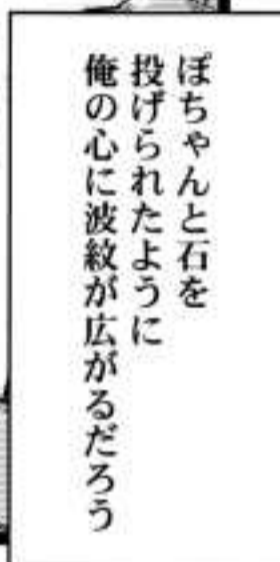 ぽちゃんと石を
投げられたように
俺の心に波紋が広がるだろう